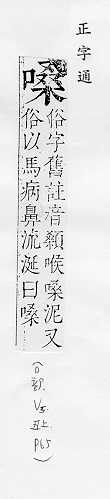 正字通
嗓
俗字舊註音顙喉嗓泥又
俗以馬病鼻流涎曰嗓
(口部. V5 丑上 P65)